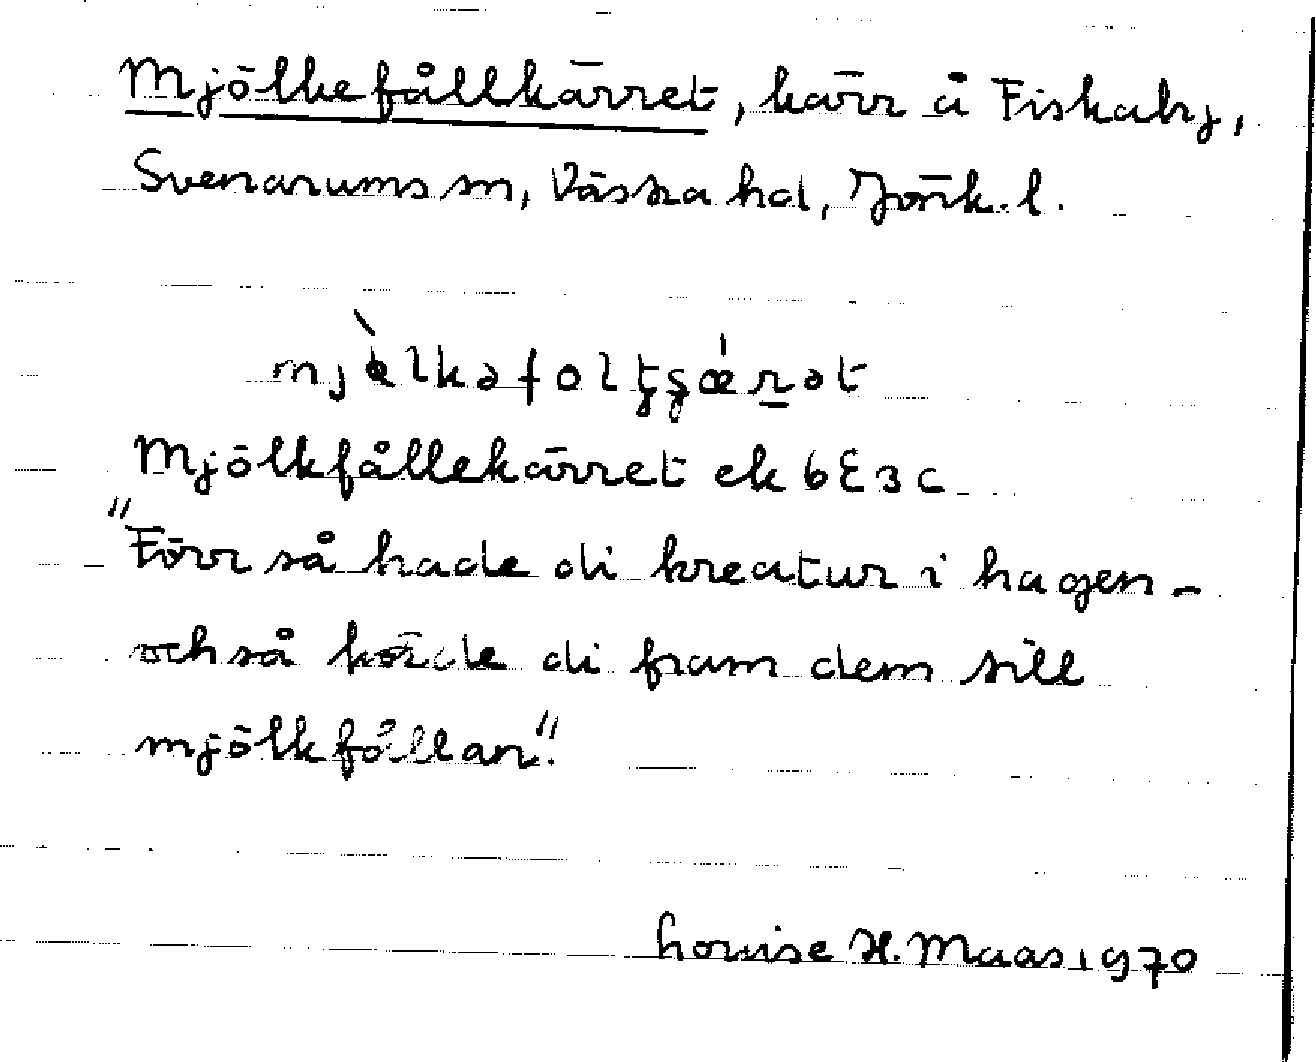 Mjölkefållkärret, kärr å Fiskaby,
Svenarums sn, Västra hd, Jönk. l.
mjölkefållkärret ek 6E3c
"Förr så hade di kreatur i hagen -
och så körde di fram dem till
mjölkfållan".
Louise H. Maas 1970